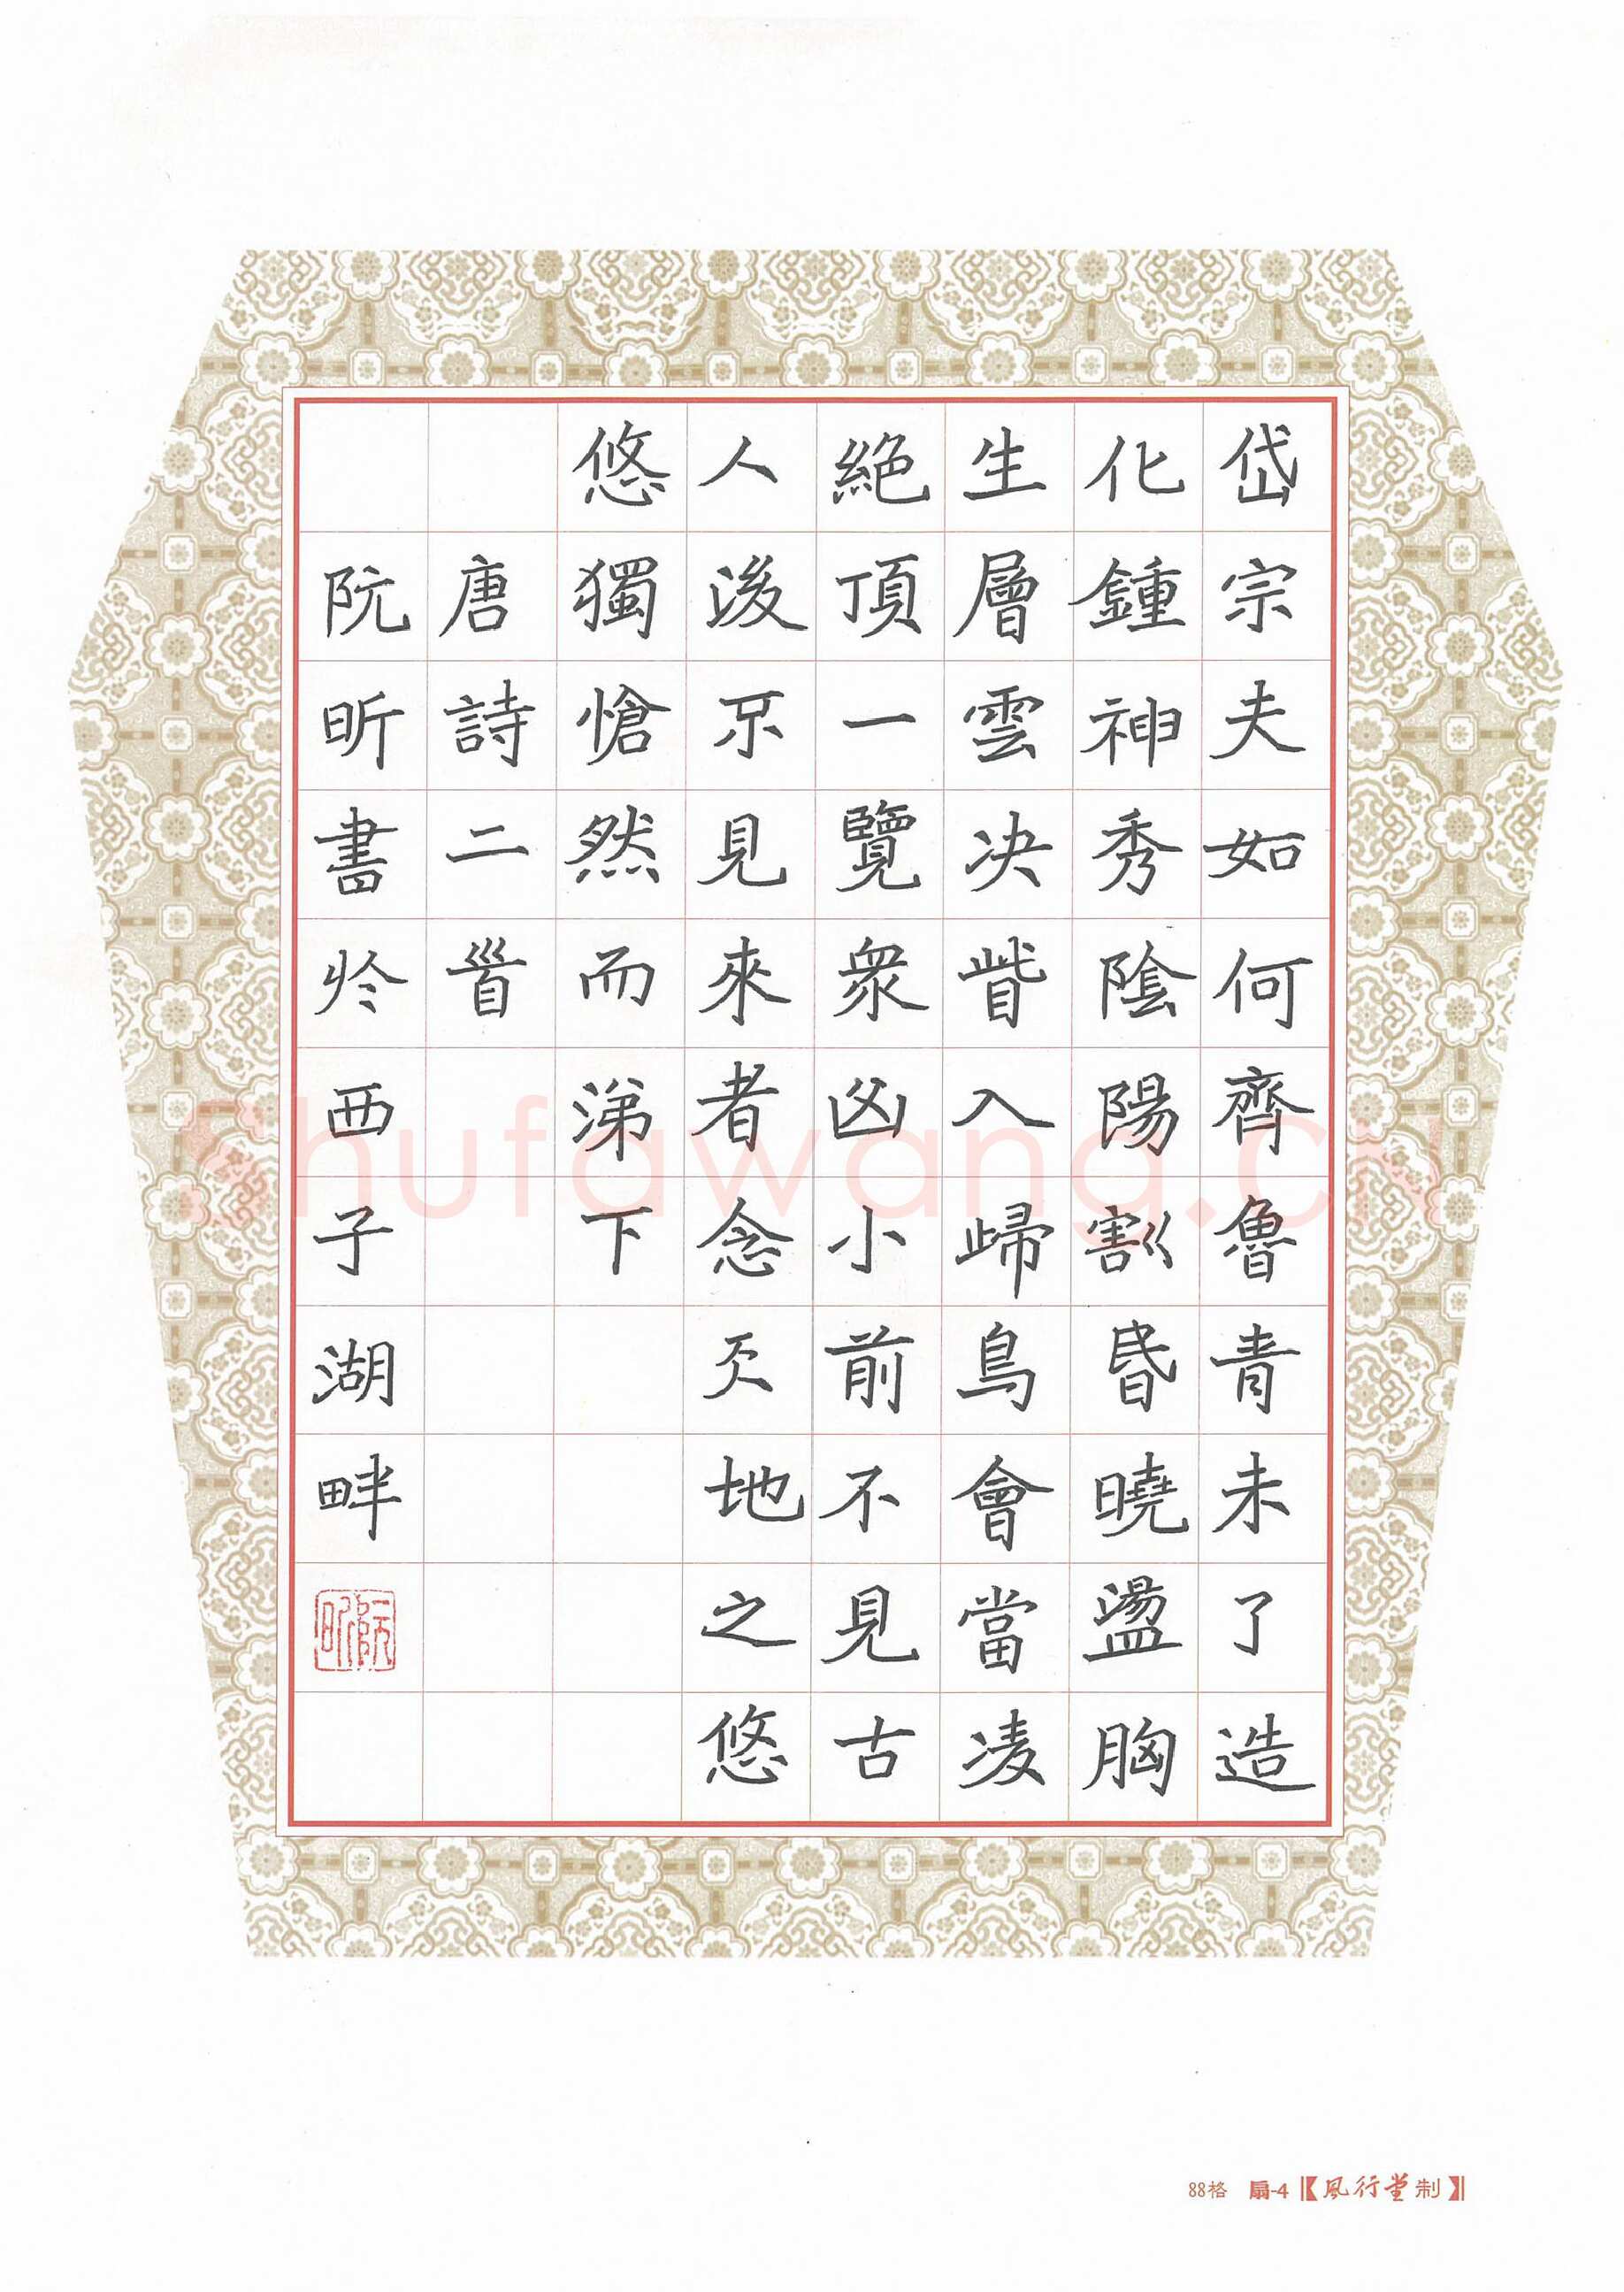 岱宗夫如何齊魯青未了造
化鍾神秀陰陽割昏曉盪胸
生層雲决眥入歸鳥會當凌
絕頂一覽衆凶小前不見古
人後不見來者念天地之悠
悠獨愴然而涕下
唐詩二首
阮昕書於西子湖畔
阮昕
Shufawang.CN
88格 扇-4【風行堂制】